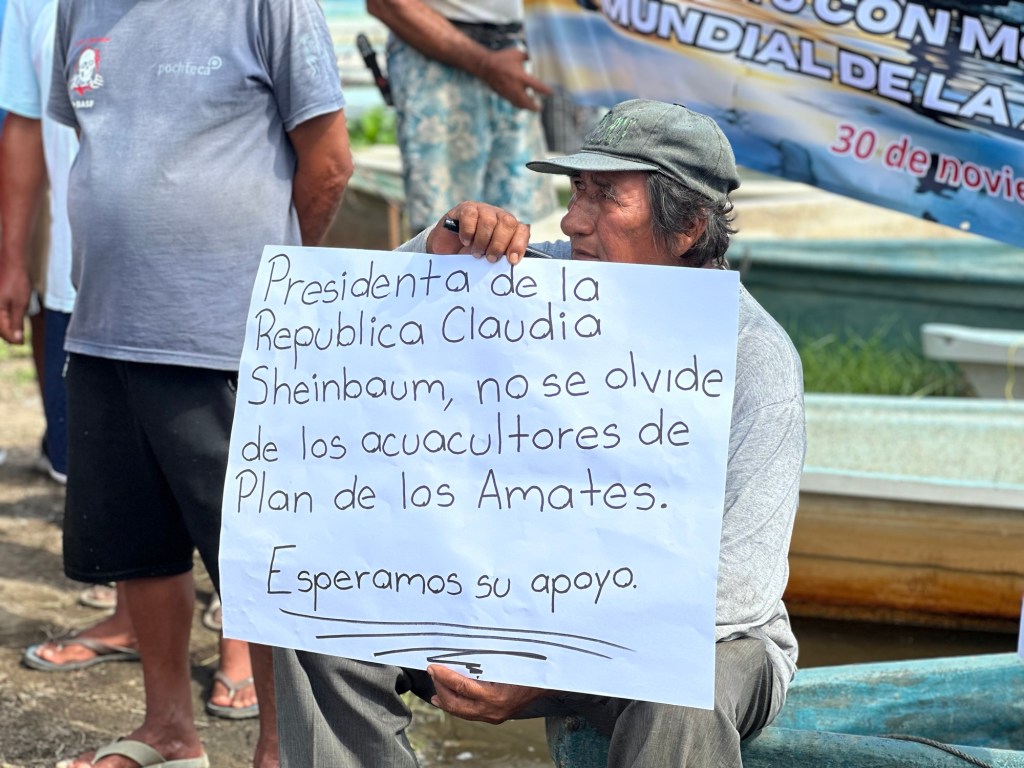 CON
MUNDIAL DE LA
30 de
pochteca
BASF
Presidenta de la
Republica Claudia
Sheinbaum, no se olvide
de los acuacultores de
Plan de los Amates.
Esperamos su apoyo.